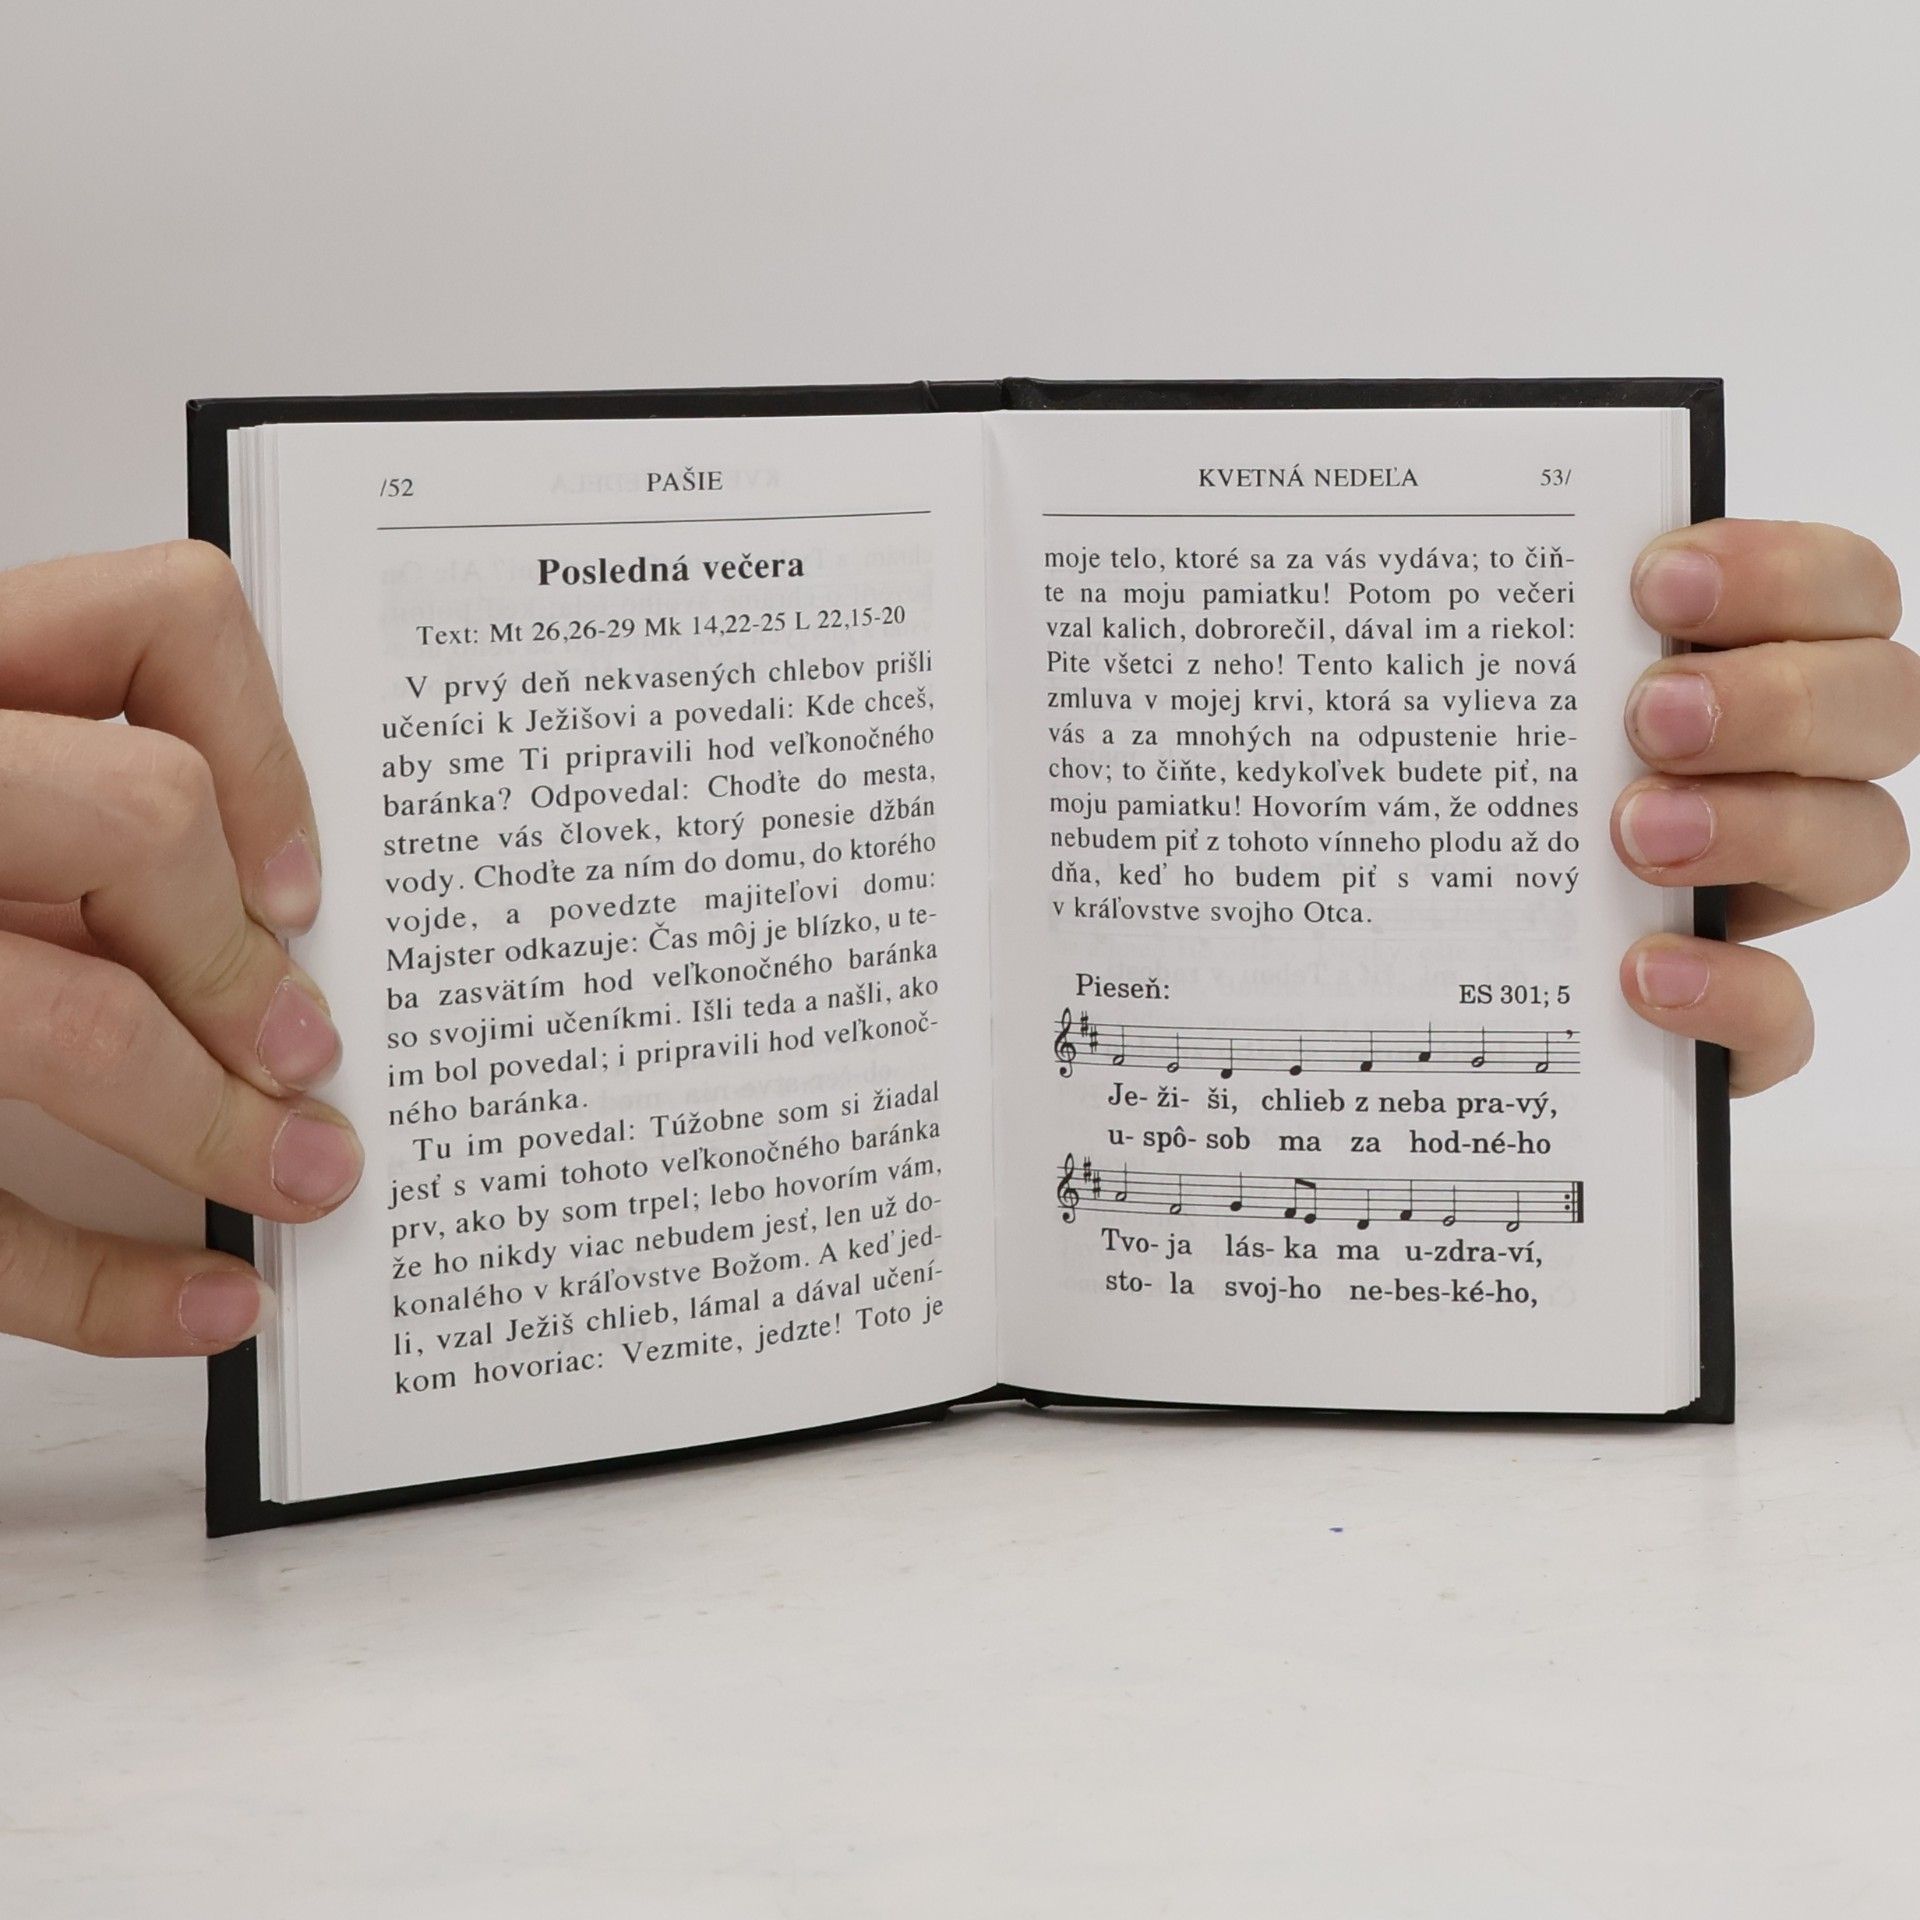 /52 PAŠIE
Posledná večera
Text: Mt 26,26-29 Mk 14,22-25 L 22,15-20
V prvý deň nekvasených chlebov prišli
učeníci k Ježišovi a povedali: Kde chceš,
aby sme Ti pripravili hod veľkonočného
baránka? Odpovedal: Choďte do mesta,
stretne vás človek, ktorý ponesie džbán
vody. Choďte za ním do domu, do ktorého
vojde, a povedzte majiteľovi domu:
Majster odkazuje: Čas môj je blízko, u te-
ba zasvätím hod veľkonočného baránka
so svojimi učeníkmi. Išli teda a našli, ako
im bol povedal; i pripravili hod veľkonoč-
ného baránka.
Tu im povedal: Túžobne som si žiadal
jesť s vami tohoto veľkonočného baránka
prv, ako by som trpel; lebo hovorím vám,
že ho nikdy viac nebudem jesť, len už do-
konalého v kráľovstve Božom. A keď jed-
li, vzal Ježiš chlieb, lámal a dával učení-
kom hovoriac: Vezmite, jedzte! Toto je
KVETNÁ NEDEĽA 53/
moje telo, ktoré sa za vás vydáva; to čiň-
te na moju pamiatku! Potom po večeri
vzal kalich, dobrorečil, dával im a riekol:
Pite všetci z neho! Tento kalich je nová
zmluva v mojej krvi, ktorá sa vylieva za
vás a za mnohých na odpustenie hrie-
chov; to čiňte, kedykoľvek budete piť, na
moju pamiatku! Hovorím vám, že oddnes
nebudem piť z tohoto vínneho plodu až do
dňa, keď ho budem piť s vami nový
v kráľovstve svojho Otca.
Pieseň: ES 301; 5
Je- ži- ši, chlieb z neba pra-vý,
u- spô- sob ma za hod-né-ho
Tvo- ja lás- ka ma u-zdra-ví,
sto- la svoj-ho ne-bes-ké-ho,